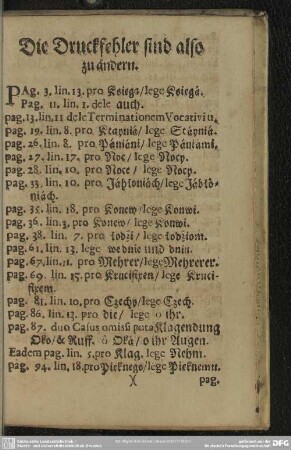 Die Druckfehler sind also
zu ändern.
PAg. 3. lin. 13. pro Ksiega/lege Ksiegą.
Pag. 11. lin. 1. dele auch.
pag. 13. lin. 11 dele Terminationem Vocativi u.
pag. 19. lin. 8. pro Ktaynią/ lege Stáynią.
pag. 26. lin. 8. pro Pániáni/ lege Pániami.
pag. 27. lin. 17. pro Noc/ lege Nocy.
pag. 28. lin. 10. pro Noce/ lege Nocy.
pag. 33. lin. 10. pro Jábłoniách/lege Jábło-
niách.
pag. 35. lin. 18. pro Konew/lege Konwi.
pag. 36. lin. 3. pro Konew/ lege Konwi.
pag. 38. lin. 7. pro łodzi/ lege łodziom.
pag. 61. lin. 13. lege wednie und dnin.
pag. 67. lin. 11. pro Mehrer/lege Mehrerer.
pag. 69. lin. 15. pro Krucifixen/ lege Kruci-
fixem.
pag. 81. lin. 10. pro Czechy/lege Czech.
pag. 86. lin. 13. pro die/ lege o ihr.
pag. 87. duo Casus omisi puta Klagendung
Oko/ & Ruff. ô Oká/ o ihr Augen.
Eadem pag. lin. 5. pro Klag. lege Nehm.
pag. 94. lin. 18. pro Pieknego/lege Pieknemu.
X pag.